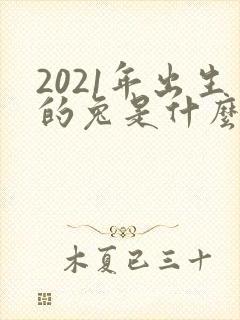 2021年出生
的兔是什麼
木夏已三十